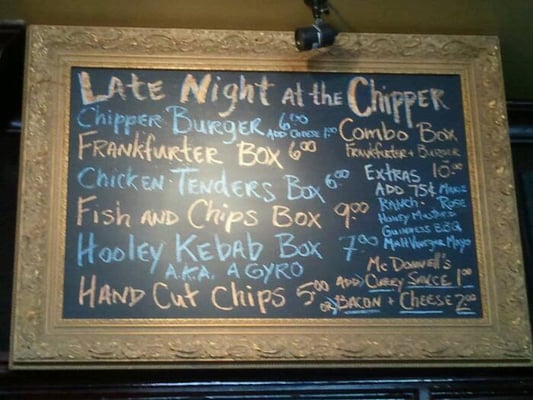 Late Night at the Chipper
Chipper Burger 6.00
Add Cheese 1.00
Frankfurter Box 6.00
Chicken Tenders Box 6.00
Fish and Chips Box 9.00
Hooley Kebab Box 7.00
A.K.A. A Gyro
Hand Cut Chips 5.00
Combo Box
Frankfurter + Burger
10.00
Extras
Add 75¢
Ranch
Rose
Honey Mustard
Guinness BBQ
Malt Vinegar Mayo
McDonnell's
Add) Curry Sauce 1.00
or) Bacon + Cheese 2.00